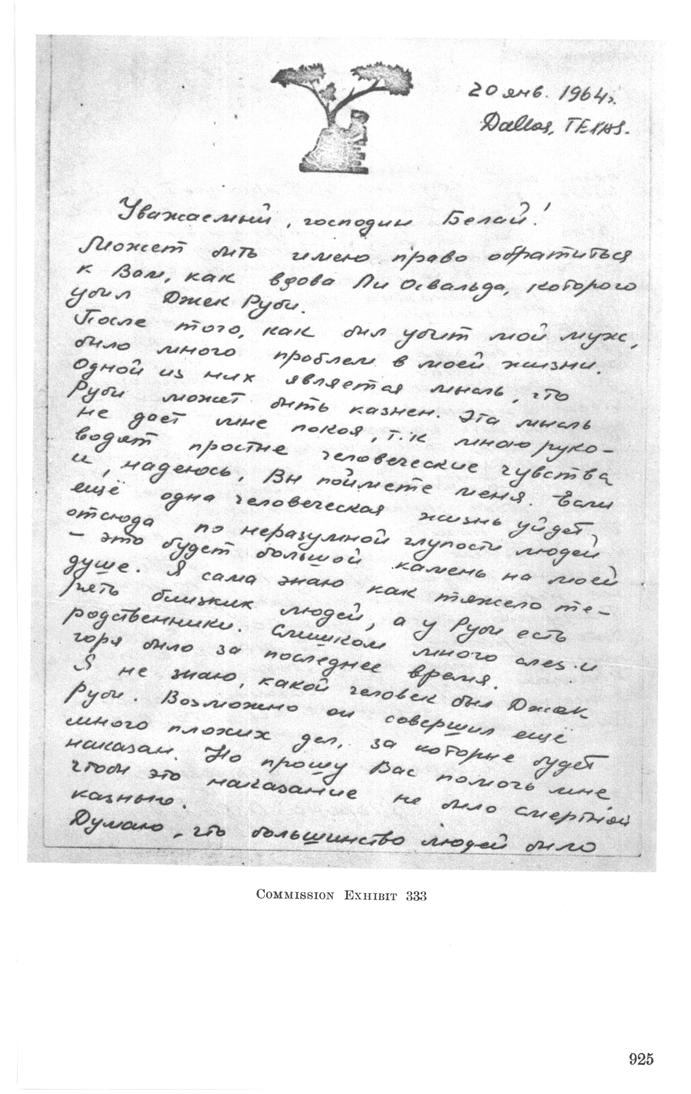 20 янв. 1964г.
Dallas, TEXAS.
Уважаемый, господин Белай!
Может быть имею право обратиться
к Вам, как вдова Ли Освальда, которого
убил Джек Руби.
После того, как был убит мой муж,
было много проблем в моей жизни.
Одной из них является мысль, что
Руби может быть казнен. Эта мысль
не дает мне покоя, т.к. мною руко-
водят простые человеческие чувства
и, надеюсь, Вы поймете меня. Если
ещё одна человеческая жизнь уйдет
отсюда по неразумной глупости людей
– это будет большой камень на моей
душе. Я сама знаю как тяжело те-
рять близких людей, а у Руби есть
родственники. Слишком много слез и
горя было за последнее время.
Я не знаю, какой человек был Джек
Руби. Возможно он совершил ещё
много плохих дел, за которые будет
наказан. Но прошу Вас помочь мне
чтобы это наказание не было смертной
казнью.
Думаю, что большинство людей было
COMMISSION EXHIBIT 333
925